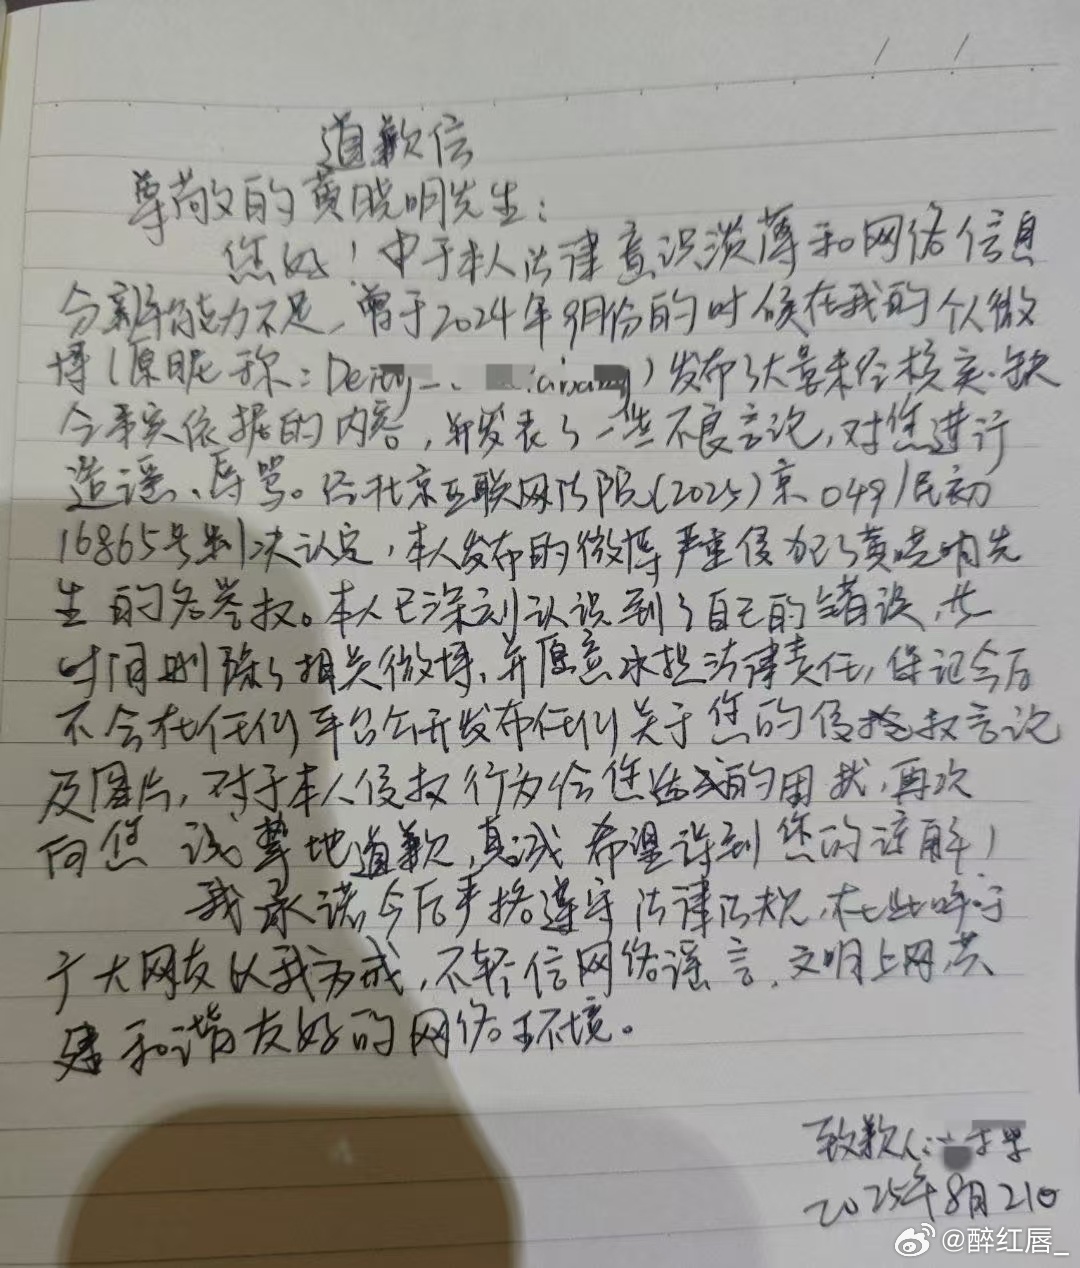 道歉信
尊敬的黄晓明先生：
您好！由于本人法律意识淡薄和网络信息
分辨能力不足，曾于2024年9月份的时候在我的个人微
博（原昵称：Deity_ ）发布了大量未经核实、缺
乏事实依据的内容，并发表了一些不良言论，对您进行
造谣、辱骂。经北京互联网法院（2025）京0491民初
16865号判决认定，本人发布的微博严重侵犯了黄晓明先
生的名誉权。本人已深刻认识到了自己的错误，此
时间删除了相关微博，并愿意承担法律责任，保证今后
不会在任何平台公开发布任何关于您的侵权言论
及图片，对于本人侵权行为给您造成的困扰，再次
向您诚挚地道歉，真诚希望得到您的谅解！
我承诺今后严格遵守法律法规，在此呼吁
广大网友以我为戒，不轻信网络谣言，文明上网共
建和谐友好的网络环境。
致歉人：
2025年8月21日
@醉红唇_